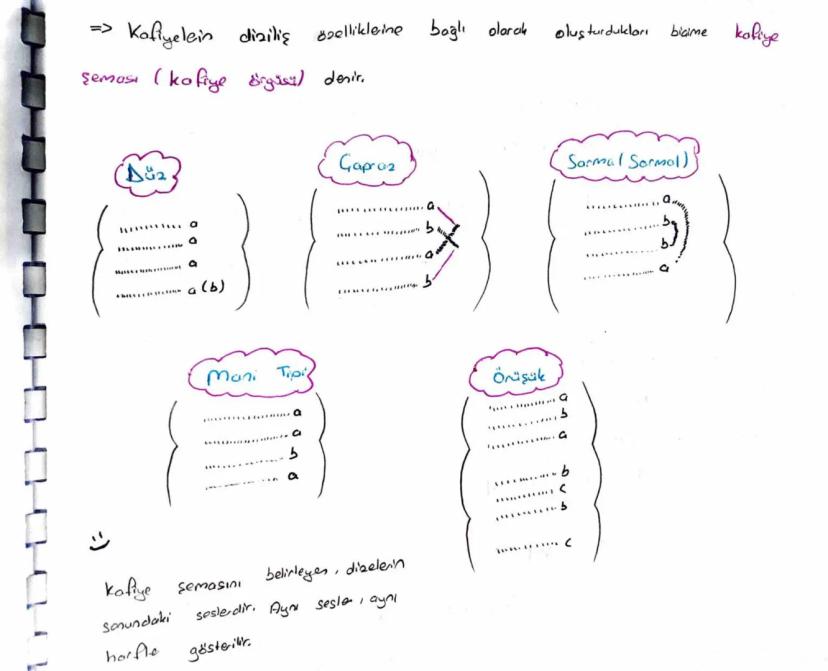 => Kafiyelein diziliş özelliklerine bağlı olarak oluşturdukları bicime kafiye
şeması (kafiye örgüsü) denir.
Düz
............ a
............ a
............ a
............ a (b)
Çapraz
............ a
............ b
............ a
............ b
Sarma (Sarmal)
............ a
............ b
............ b
............ a
Mani Tipi
............ a
............ a
............ b
............ a
Örüşük
............ a
............ b
............ a
............ b
............ c
............ b
............ c
Kafiye şemasını belirleyen, dizelerin
sonundaki seslerdir. Aynı sesler, aynı
harfle gösterilir.